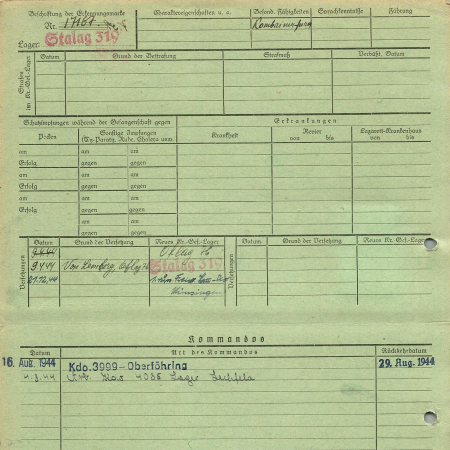 Beschriftung der Erkennungsmarke
Charaktereigenschaften u. a.
Besond. Fähigkeiten
Sprachkenntnisse
Führung
Nr.
Lager:
Stalag 319
Strafen im Kr.-Gef.-Lager
Datum
Grund der Bestrafung
Strafmaß
Verbüßt, Datum
Schutzimpfungen während der Gefangenschaft gegen
Erkrankungen
Pocken
Sonstige Impfungen
(Ty-Paraty, Ruhr, Cholera usw.
Krankheit
Revier
von bis
Lazarett-Krankenhaus
von bis
am am am
Erfolg gegen gegen
am am am
Erfolg gegen gegen
am am am
Erfolg gegen gegen
am am
gegen gegen
Versetzungen
Datum Grund der Versetzung Neues Kr.-Gef.-Lager
Versetzungen
Datum Grund der Versetzung Neues Kr.-Gef.-Lager
9.4.44
9.4.44 Von Lemberg
Stalag 319
21.12.44
Kommandos
Datum Art des Kommandos Rückkehrdatum
16. Aug. 1944 Kdo. 3999-Oberföhring 29. Aug. 1944
4036 Lager